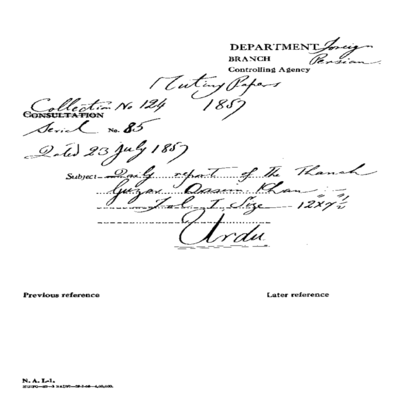 DEPARTMENT Foreign
BRANCH Persian
Controlling Agency
Mutiny Papers
Collection No 124 1857
CONSULTATION
Serial No. 85
Dated 23 July 1857
Subject Daily report of the Thanah
Guzar Khan
Fol. 1 Size 12x7
Urdu
Previous reference Later reference
N. A. I-1.